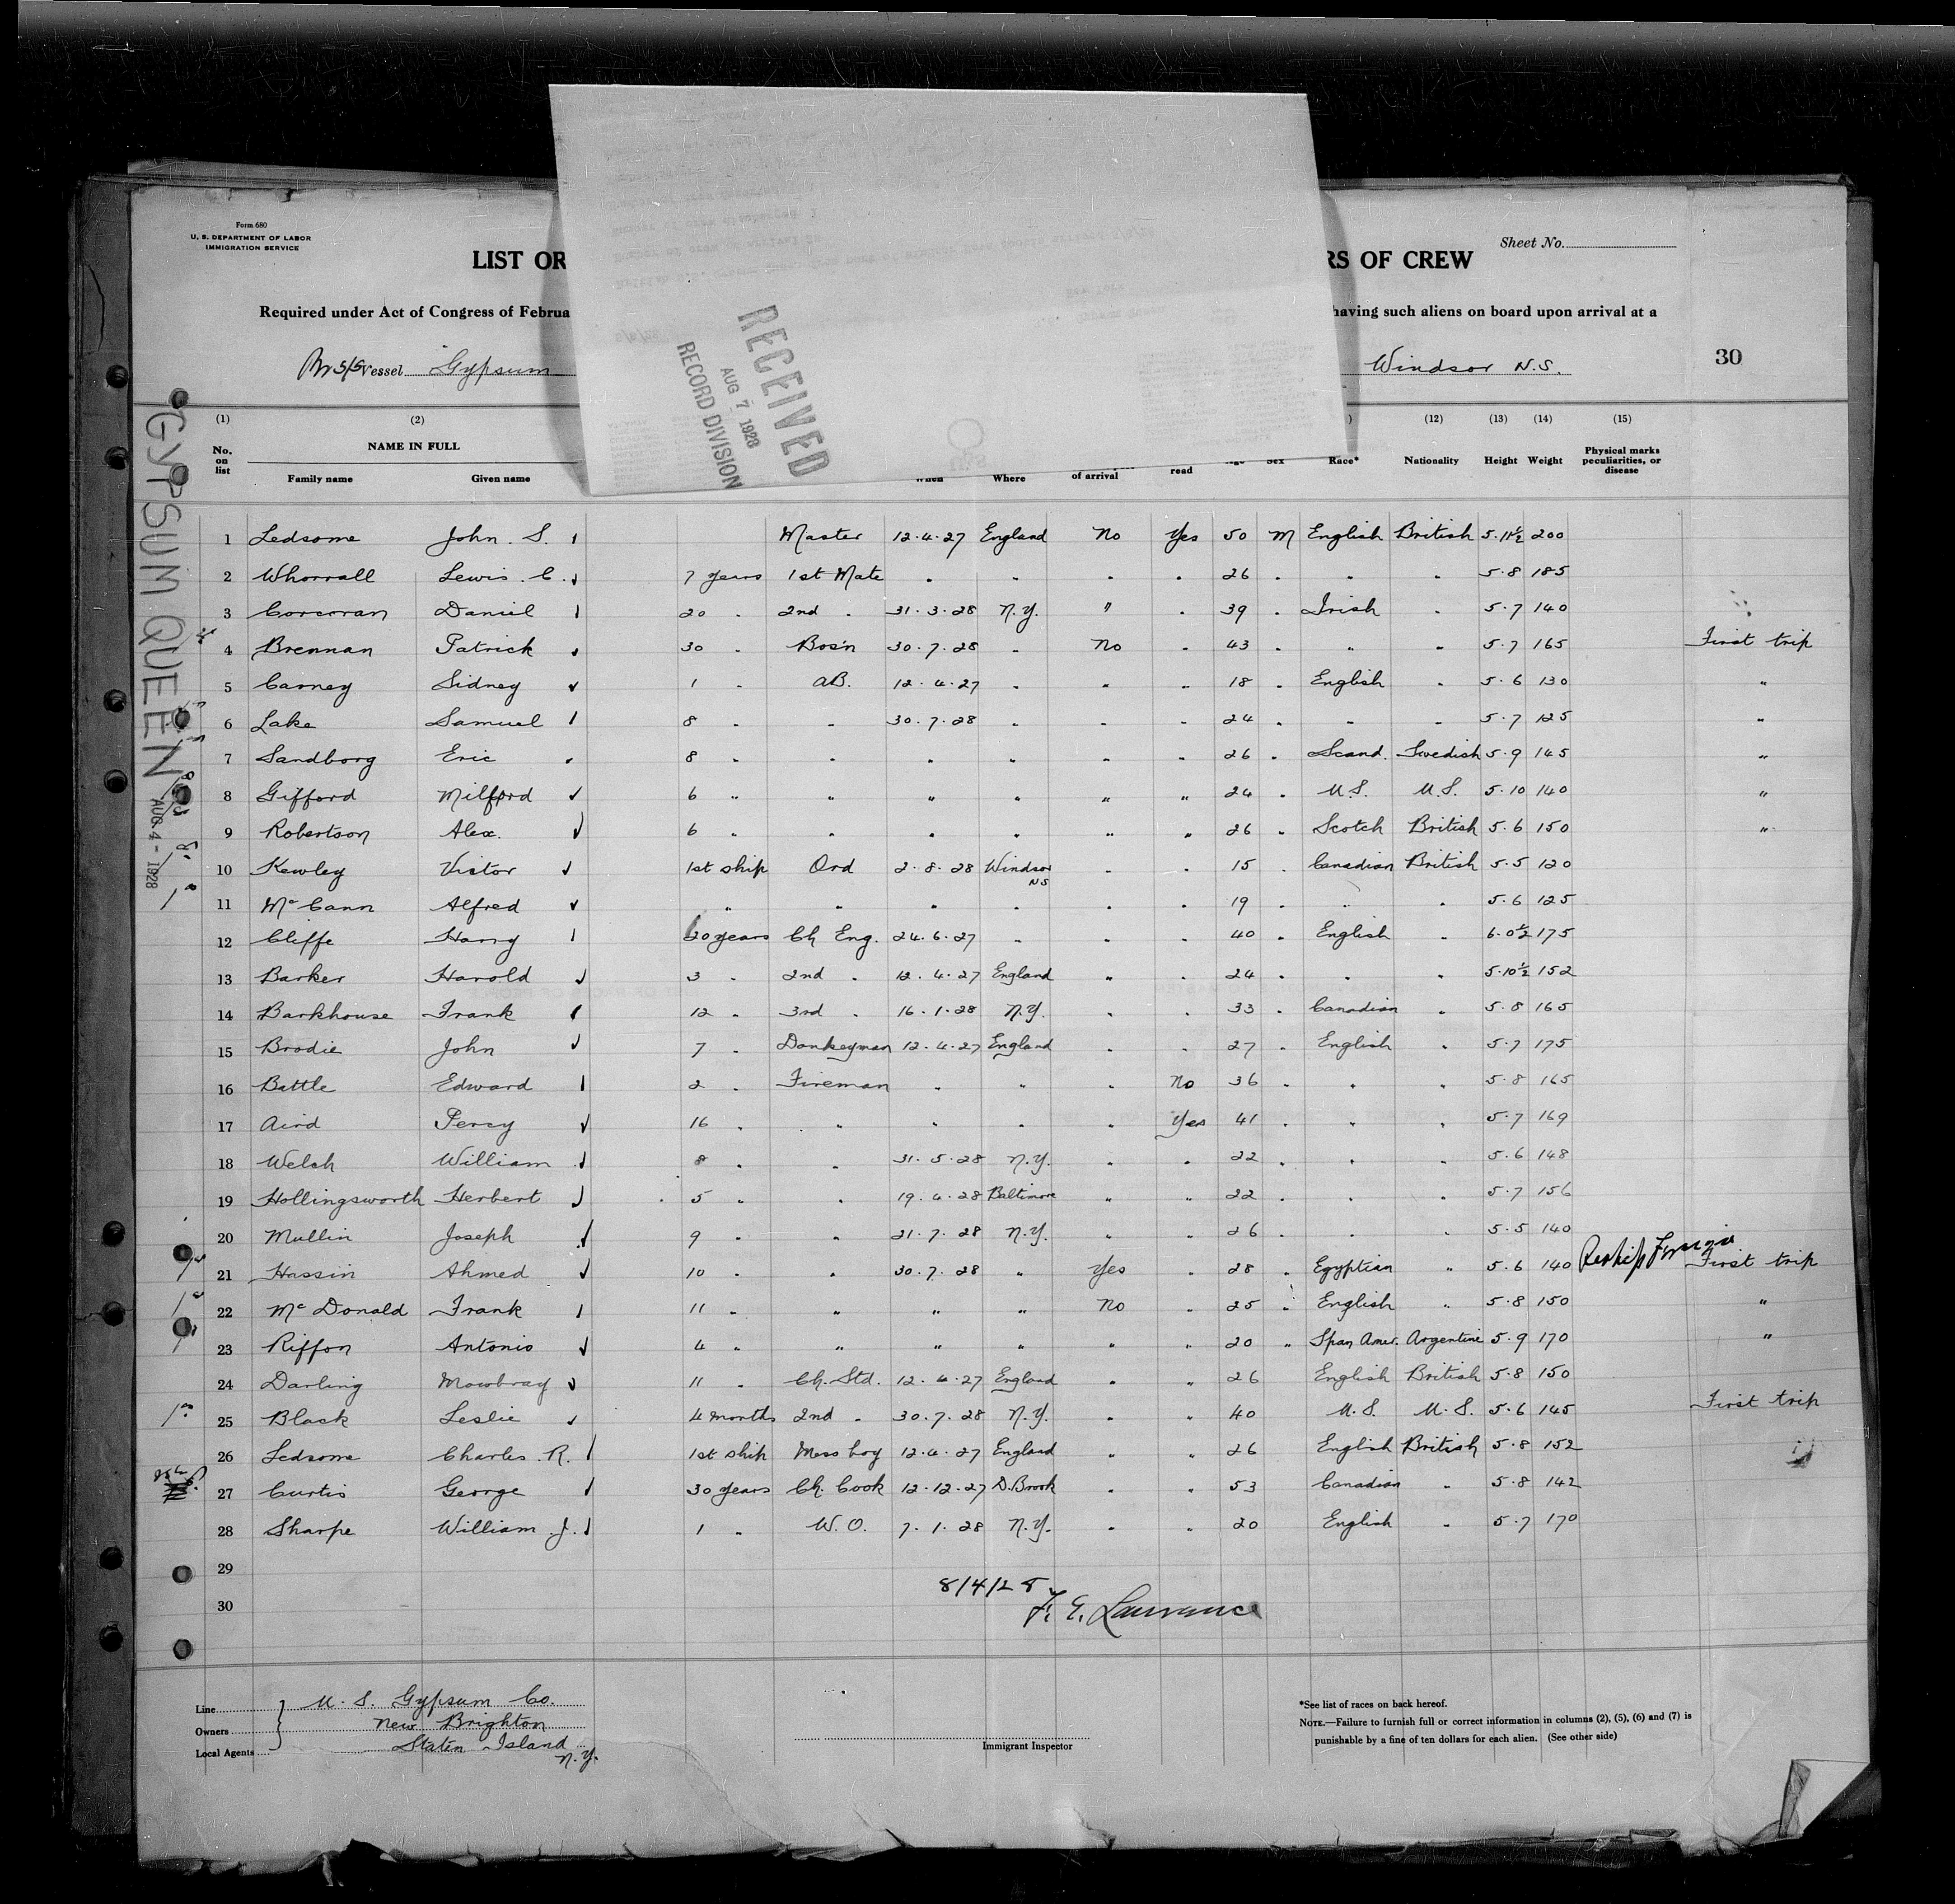 Form 680
U. S. DEPARTMENT OF LABOR
IMMIGRATION SERVICE
LIST OR
RS OF CREW
Sheet No.
Required under Act of Congress of Februa
having such aliens on board upon arrival at a
Vessel Gypsum
Windsor N.S.
30
RECEIVED
AUG 7 1928
RECORD DIVISION
GYPSUM QUEEN
AUG 4 - 1928
(1) (2) (12) (13) (14) (15)
No. on list NAME IN FULL Family name Given name when Where of arrival read Sex Race* Nationality Height Weight Physical marks peculiarities, or disease
1 Ledsome John. S. Master 12.4.27 England No Yes 50 M English British 5.11½ 200
2 Whorrall Lewis. C. 7 years 1st Mate . . . . 26 . . . 5.8 185
3 Corcoran Daniel 20 . 2nd . 31.3.28 N.Y. " . 39 . Irish . 5.7 140
4 Brennan Patrick 30 . Bos'n 30.7.28 . No . 43 . " . 5.7 165 First trip
5 Carney Sidney 1 . AB. 12.4.27 . . . 18 . English . 5.6 130 "
6 Lake Samuel 8 . . 30.7.28 . . . 24 . . . 5.7 125 "
7 Sandborg Eric 8 . . . . . . 26 . Scand. Swedish 5.9 145 "
8 Gifford Milford 6 " " " " " " 24 . U.S. U.S. 5.10 140 "
9 Robertson Alex. 6 " . . . " " 26 . Scotch British 5.6 150 "
10 Kewley Victor 1st ship Ord 2.8.28 Windsor NS . . 15 . Canadian British 5.5 120
11 McCann Alfred " " . . . . 19 . . . 5.6 125
12 Cliffe Harry 20 years Ch Eng. 24.6.27 . . . 40 . English . 6.0½ 175
13 Barker Harold 3 . 2nd . 12.4.27 England " . 24 . . . 5.10½ 152
14 Barkhouse Frank 12 . 3rd . 16.1.28 N.Y. . . 33 . Canadian . 5.8 165
15 Brodie John 7 . Donkeyman 12.4.27 England . . 27 . English . 5.7 175
16 Battle Edward 2 . Fireman . " . No 36 . . . 5.8 165
17 Aird Percy 16 . . . . . Yes 41 . . . 5.7 169
18 Welsh William 8 . . 31.5.28 N.Y. . . 22 . . . 5.6 148
19 Hollingsworth Herbert 5 . . 19.4.28 Baltimore " " 22 . . . 5.7 156
20 Mullin Joseph 9 . . 21.7.28 N.Y. . . 26 . . . 5.5 140
21 Hassin Ahmed 10 . . 30.7.28 " Yes . 28 . Egyptian " 5.6 140 Reship Foreign First trip
22 McDonald Frank 11 . " " " No . 25 " English . 5.8 150 "
23 Riffon Antonio 4 . " " " . . 20 " Span Amer. Argentine 5.9 170 "
24 Darling Mowbray 11 . Ch. Std. 12.4.27 England . . 26 English British 5.8 150
25 Black Leslie 4 months 2nd . 30.7.28 N.Y. . . 40 U.S. U.S. 5.6 145 First trip
26 Ledsome Charles. R. 1st ship Mess boy 12.4.27 England . . 26 English British 5.8 152
27 Curtis George 30 years Ch. Cook 12.12.27 D.Brook . . 53 Canadian . 5.8 142
28 Sharpe William. J. 1 . W.O. 7.1.28 N.Y. . . 20 English . 5.7 170
29
30
8/4/28
F. E. Lawrance
Line U. S. Gypsum Co.
Owners New Brighton
Local Agents Staten Island
N.Y.
Immigrant Inspector
*See list of races on back hereof.
NOTE.—Failure to furnish full or correct information in columns (2), (5), (6) and (7) is
punishable by a fine of ten dollars for each alien. (See other side)